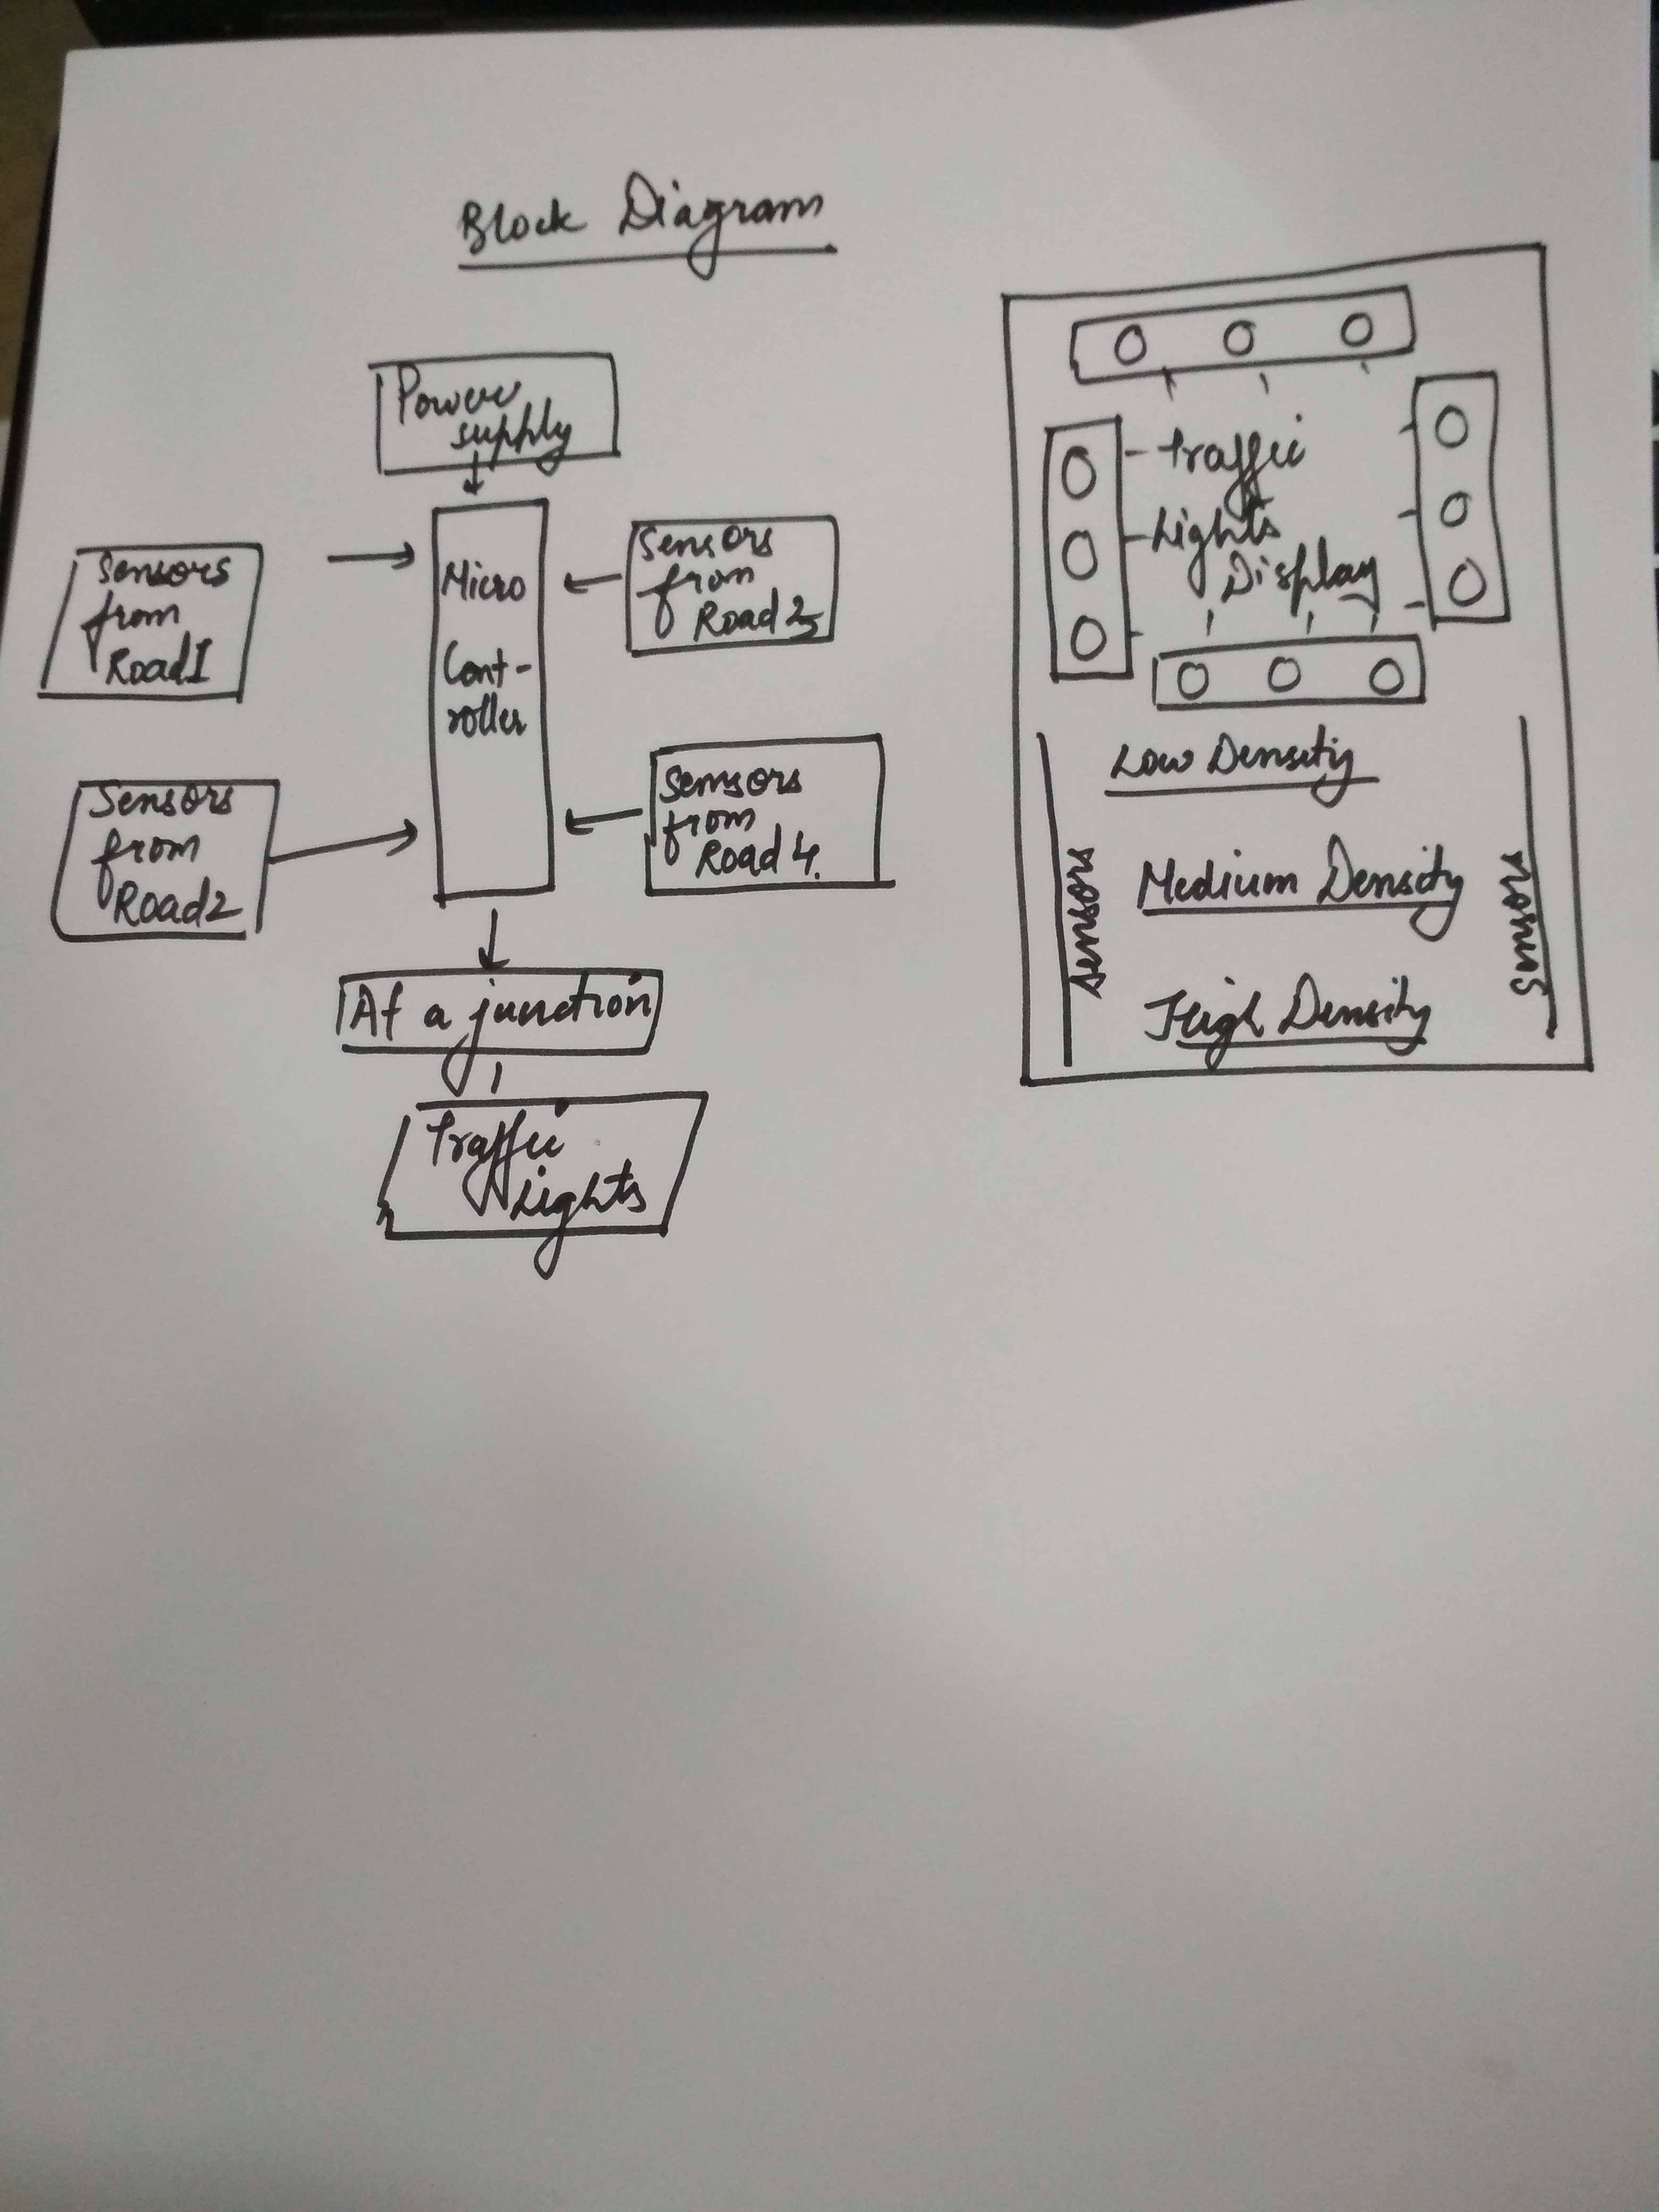 Block Diagram
Power
supply
Sensors
from
Road 1
Micro
Cont-
roller
Sensors
from
Sensors
from
Road 2
Sensors
from
Road 4.
At a junction
Traffic
Lights
Traffic
Lights
Display
Low Density
Medium Density
High Density
Sensors
Sensors